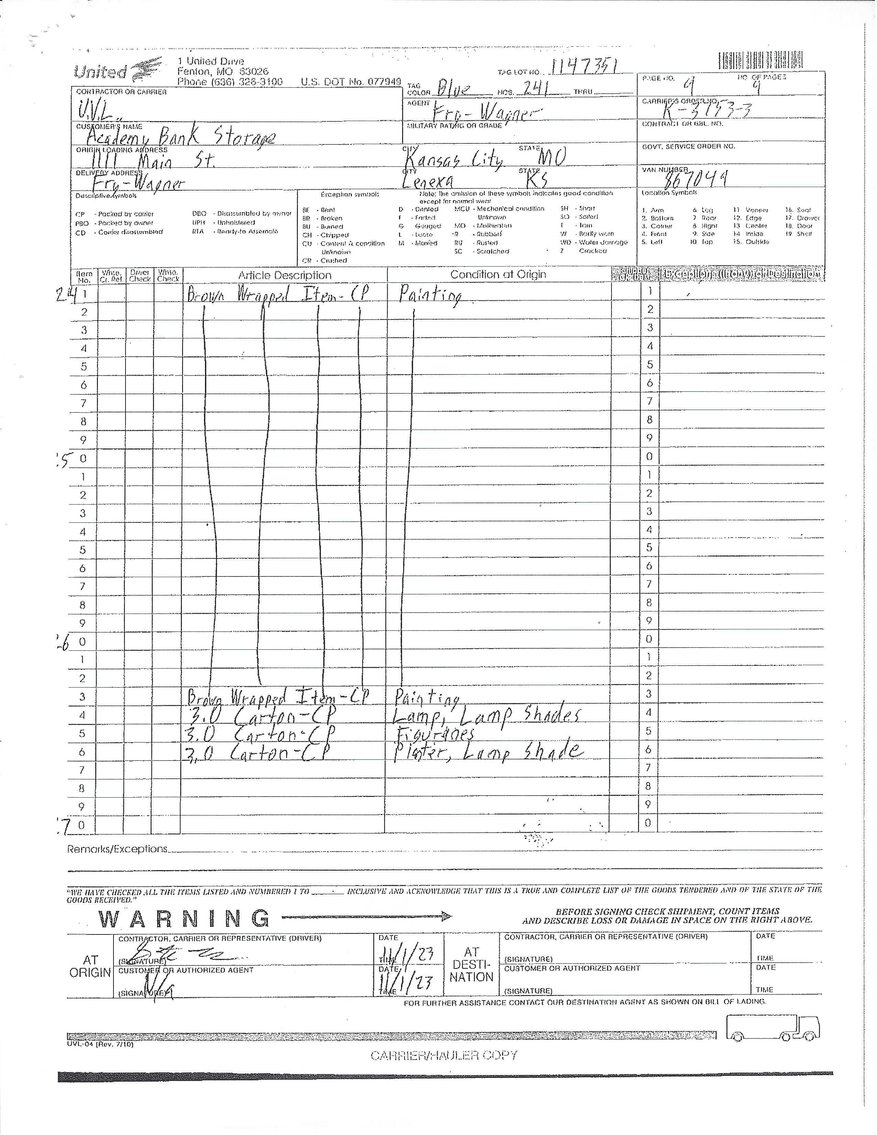 United
1 United Drive
Fenton, MO 63026
Phone (636) 326-3100 U.S. DOT No. 077949
TAG LOT NO. 1147351
TAG COLOR Blue NOS. 241 THRU
PAGE NO. 9 NO OF PAGES 9
CONTRACTOR OR CARRIER
U.V.L.
AGENT
Fry-Wagner
CARRIER'S GROSS NO.
K-3153-3
CUSTOMER'S NAME
Academy Bank Storage
MILITARY RATING OR GRADE
CONTRACT OR GBL NO.
ORIGIN LOADING ADDRESS
1111 Main St.
CITY
Kansas City
STATE
MO
GOVT. SERVICE ORDER NO.
DELIVERY ADDRESS
Fry-Wagner
CITY
Lenexa
STATE
KS
VAN NUMBER
867044
Descriptive Symbols
CP - Packed by carrier
PBO - Packed by owner
CD - Carrier disassembled
DBO - Disassembled by owner
RTA - Ready-to Assemble
Exception symbols
Note: the omission of these symbols indicates good condition
except for normal wear
BE - Bent
BR - Broken
BU - Burned
CH - Chipped
CU - Content & condition
Unknown
CR - Crushed
D - Dented
F - Faded
G - Gouged
L - Loose
M - Marred
MCU - Mechanical condition
Unknown
MO - Motheaten
R - Rubbed
RU - Rusted
SC - Scratched
SH - Short
SO - Soiled
T - Torn
W - Badly worn
WD - Water damage
Z - Cracked
Location Symbols
1. Arm
2. Bottom
3. Corner
4. Front
5. Left
6. Leg
7. Rear
8. Right
9. Side
10. Top
11 Veneer
12. Edge
13 Center
14 Inside
15. Outside
16. Seat
17. Drawer
18. Door
19 Shelf
Item No. Whse. Cr. Ref. Driver Check Whse. Check Article Description Condition at Origin Exceptions (if any) at Destination
241 Brown Wrapped Item-CP Painting 1
2 2
3 3
4 4
5 5
6 6
7 7
8 8
9 9
5 0 0
1 1
2 2
3 3
4 4
5 5
6 6
7 7
8 8
9 9
6 0 0
1 1
2 2
3 Brown Wrapped Item-CP Painting 3
4 3.0 Carton-CP Lamp, Lamp Shades 4
5 3.0 Carton-CP Figurines 5
6 3.0 Carton-CP Lamp Shade 6
7 7
8 8
9 9
7 0 0
Remarks/Exceptions
"WE HAVE CHECKED ALL THE ITEMS LISTED AND NUMBERED 1 TO INCLUSIVE AND ACKNOWLEDGE THAT THIS IS A TRUE AND COMPLETE LIST OF THE GOODS TENDERED AND OF THE STATE OF THE
GOODS RECEIVED."
WARNING
BEFORE SIGNING CHECK SHIPMENT, COUNT ITEMS
AND DESCRIBE LOSS OR DAMAGE IN SPACE ON THE RIGHT ABOVE.
AT ORIGIN
CONTRACTOR, CARRIER OR REPRESENTATIVE (DRIVER)
(SIGNATURE)
DATE
TIME
11/1/23
CUSTOMER OR AUTHORIZED AGENT
(SIGNATURE)
N/a
DATE
TIME
11/1/23
AT DESTI-NATION
CONTRACTOR, CARRIER OR REPRESENTATIVE (DRIVER)
(SIGNATURE)
DATE
TIME
CUSTOMER OR AUTHORIZED AGENT
(SIGNATURE)
DATE
TIME
FOR FURTHER ASSISTANCE CONTACT OUR DESTINATION AGENT AS SHOWN ON BILL OF LADING.
UVL-04 (Rev. 7/10)
CARRIER/HAULER COPY